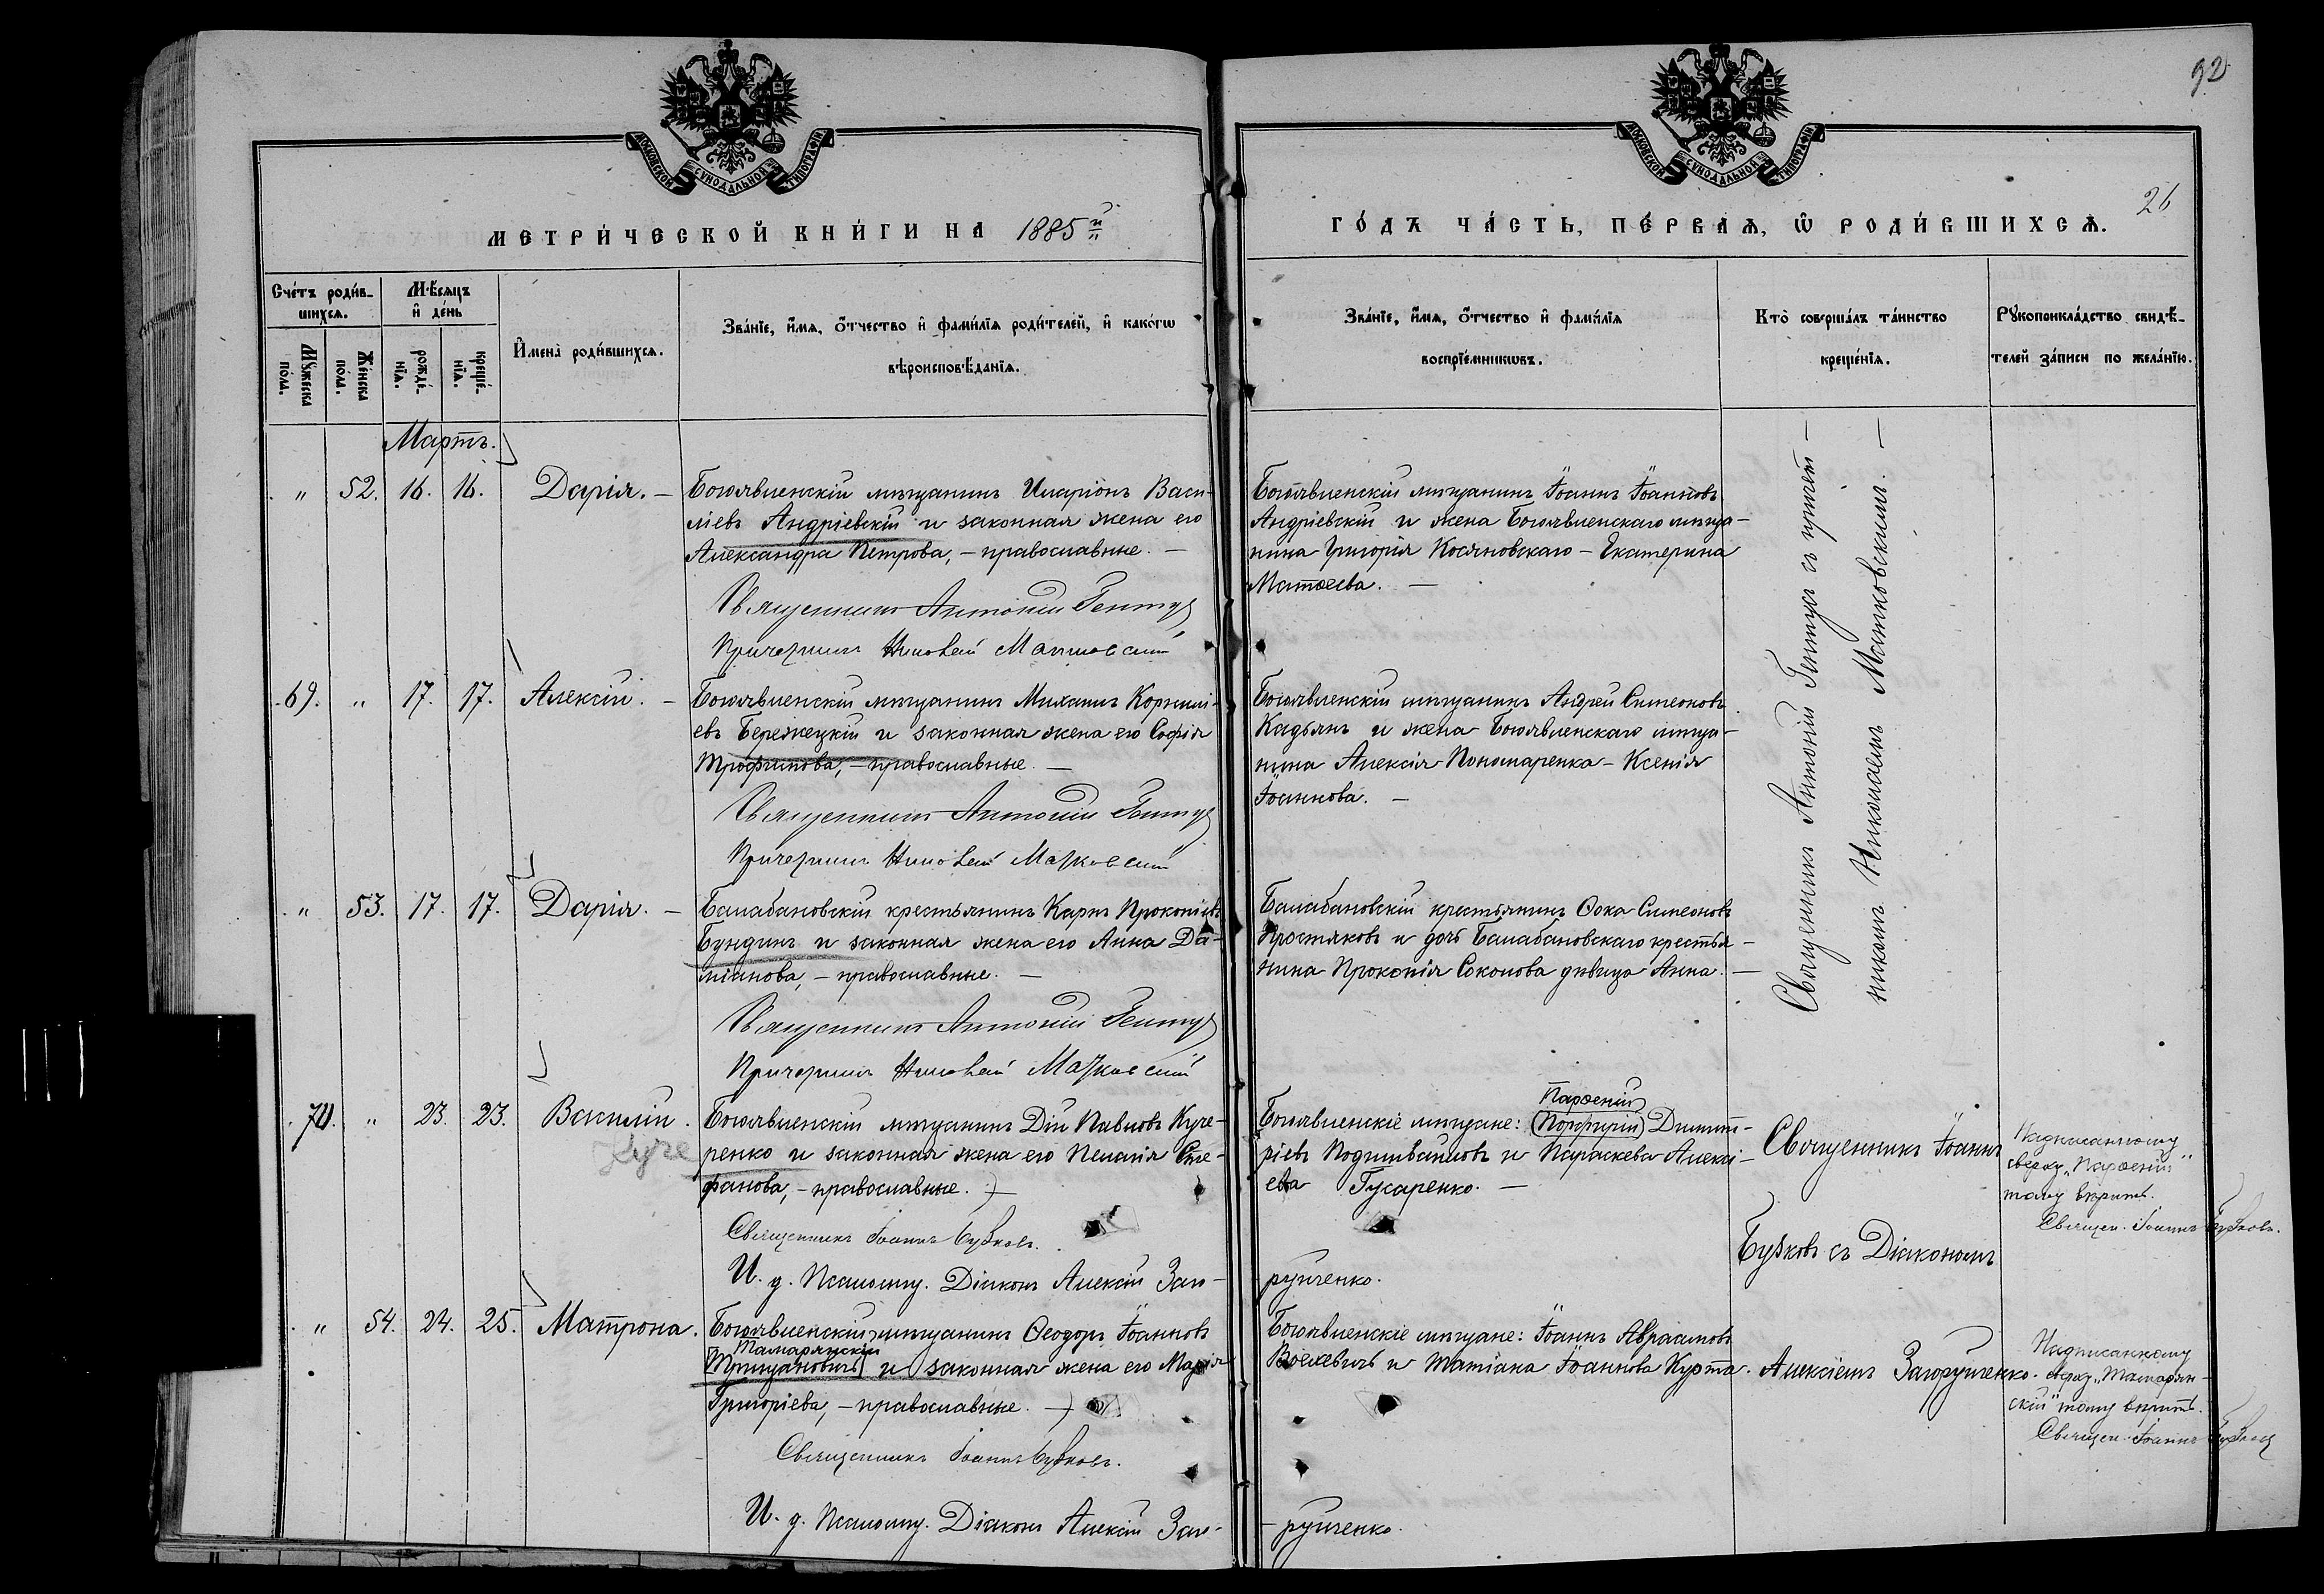 92
МОСКОВСКОЙ СѴНОДАЛЬНОЙ ТИПОГРАФІИ
МОСКОВСКОЙ СѴНОДАЛЬНОЙ ТИПОГРАФІИ
26
МЕТРИ́ЧЕСКОЙ КНИ́ГИ НА 1885й
ГО́ДЪ ЧА́СТЬ, ПЕ́РВАѦ, Ѡ РОДИ́ВШИХСѦ.
Сче́тъ роди́в-
шихсѧ.
Мꙋжеска по́ла.
Же́нска по́ла.
Мѣсѧцъ
и҆ де́нь
рожде́-
нїѧ.
креще́-
нїѧ.
И҆мена̀ роди́вшихсѧ.
Зва́нїе, и҆́мѧ, ѻ҆́тчество и҆ фами́лїѧ роди́телей, и҆ како́гѡ
вѣроисповѣ́данїѧ.
Зва́нїе, и҆́мѧ, ѻ҆́тчество и҆ фами́лїѧ
воспрїе́мникѡвъ.
Кто̀ соверша́лъ та́инство
креще́нїѧ.
Рꙋкоприкла́дство свидѣ́-
телей за́писи по жела́нїю.
Мартъ.
" 52. 16. 16. Дарія. – Богоявленскій мѣщанинъ Иларіонъ Васи-
ліевъ Андріевскій и законная жена его
Александра Петрова, – православные. –
Священникъ Антоній Гентуз
Причетникъ Николай Матковскій
Богоявленскій мѣщанинъ Іоаннъ Іоанновъ
Андріевскій и жена Богоявленскаго мѣща-
нина Григорія Косяновскаго – Екатерина
Матѳеева. –
69. " 17. 17. Алексій. – Богоявленскій мѣщанинъ Михаилъ Корнилі-
евъ Бережецкій и законная жена его Софія
Трофимова, – православные. –
Священникъ Антоній Гентуз
Причетникъ Николай Матковскій
Богоявленскій мѣщанинъ Андрей Симеоновъ
Кадьянъ и жена Богоявленскаго мѣща-
нина Алексія Пономаренка – Ксенія
Іоаннова. –
" 53. 17. 17. Дарія. – Балабановскій крестьянинъ Карпъ Прокопіевъ
Бундинъ и законная жена его Анна Да-
міанова, – православные. –
Священникъ Антоній Гентуз
Причетникъ Николай Матковскій
Балабановскій крестьянинъ Ѳока Симеоновъ
Простяковъ и дочь Балабановскаго крестья-
нина Прокопія Соколова дѣвица Анна. –
Священникъ Антоній Гентуз съ причет –
никомъ Николаемъ Матковскимъ. –
70. " 23. 23. Василій. Богоявленскій мѣщанинъ Дій Павловъ Куче-
Куче
ренко и законная жена его Пелагія Сте-
фанова, – православные. –
Священникъ Іоаннъ Бужковъ.
И. д. Псаломщ. Діаконъ Алексій Заг-
руйченко.
Парѳеній
Богоявленскіе мѣщане: (Порфирій) Димит-
ріевъ Подшиваиловъ и Параскева Алексі-
ева Гусаренко. –
Священникъ Іоаннъ
Бужковъ съ Діакономъ
Алексіемъ Загруйченко.
Надписанному
сверху „Парѳеній"
тому вѣрить.
Священ. Іоаннъ Бужковъ.
" 54. 24. 25. Матрона. Богоявленскій мѣщанинъ Ѳеодоръ Іоанновъ
Тамарянскій
и законная жена его Марія
Григоріева, – православные. –
Священникъ Іоаннъ Бужковъ.
И. д. Псаломщ. Діаконъ Алексій Заг-
руйченко.
Богоявленскіе мѣщане: Іоаннъ Авраамовъ
и Татіана Іоаннова Курта.
Надписанному
сверху „Тамарян-
скій" тому вѣрить.
Священ. Іоаннъ Бужковъ